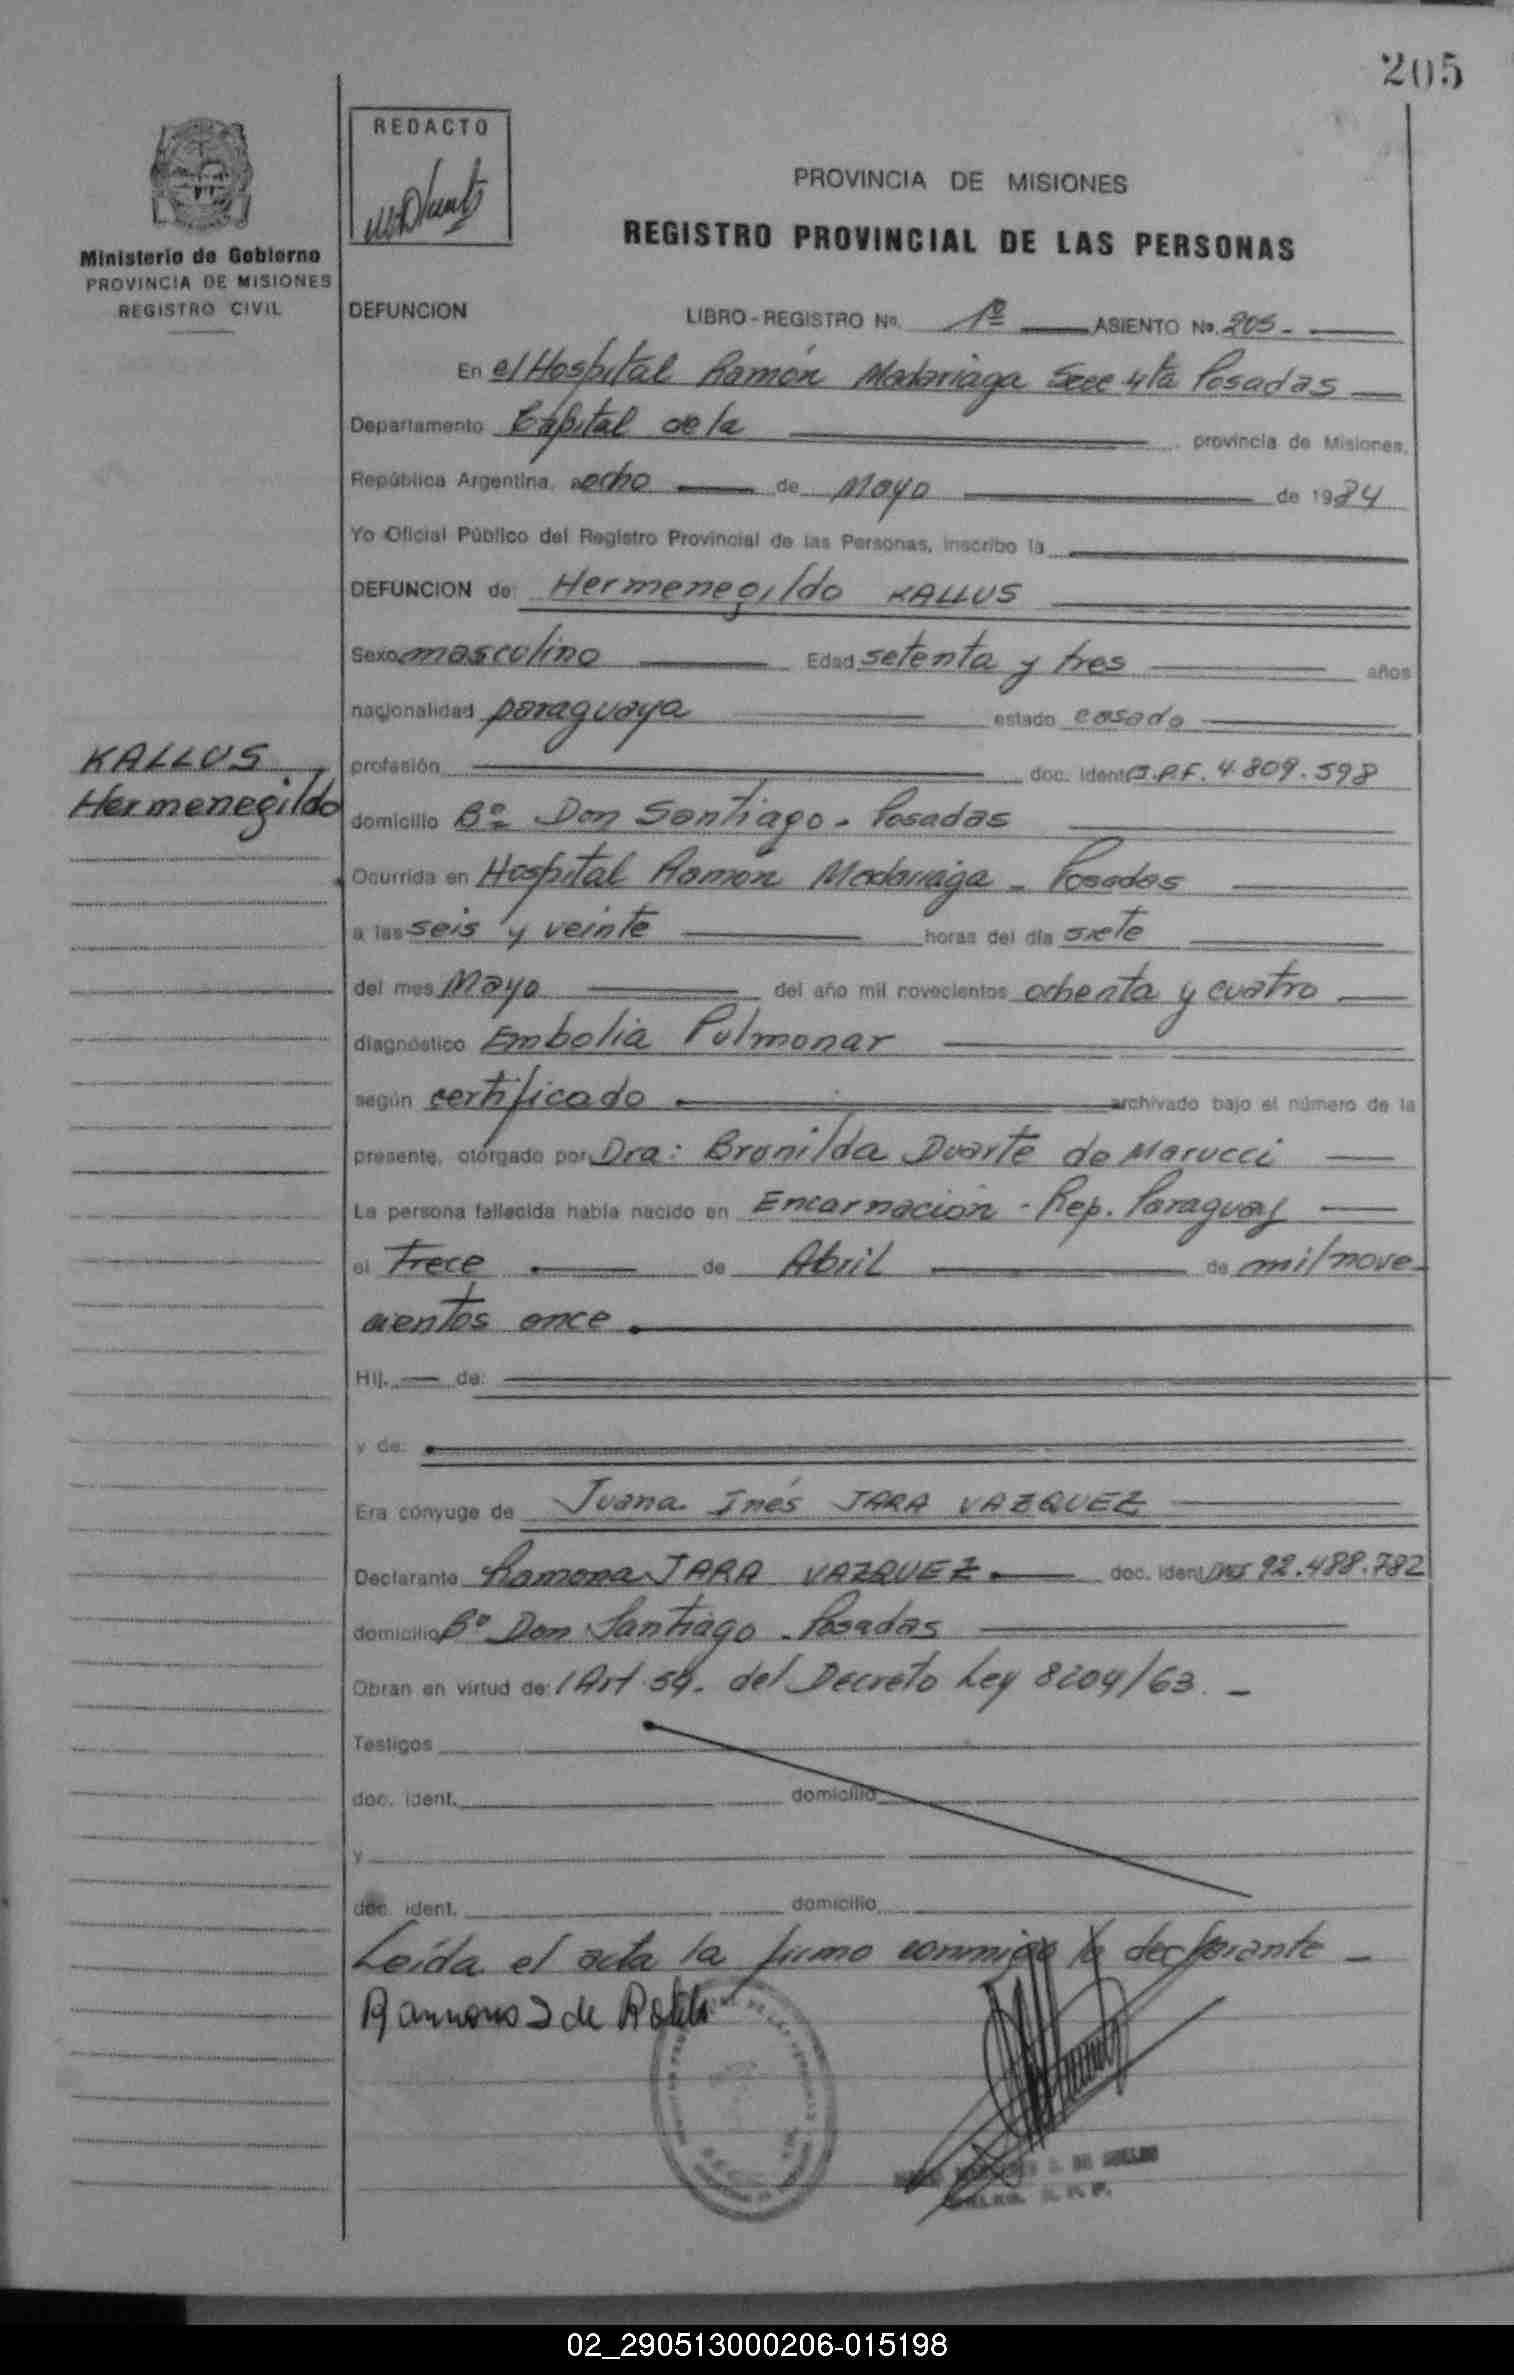 205
REDACTO
Ministerio de Gobierno
PROVINCIA DE MISIONES
REGISTRO CIVIL
PROVINCIA DE MISIONES
REGISTRO PROVINCIAL DE LAS PERSONAS
DEFUNCION LIBRO - REGISTRO No. 1º ASIENTO No. 205.-
En el Hospital Ramón Madariaga Secc 4ta Posadas
Departamento Capital de la provincia de Misiones,
República Argentina, a ocho de Mayo de 1984
Yo Oficial Público del Registro Provincial de las Personas, inscribo la
DEFUNCION de: Hermenegildo KALLUS
Sexo masculino Edad setenta y tres años
nacionalidad paraguaya estado casado
KALLUS
Hermenegildo
profesión doc. ident. C.I.P.F. 4.809.598
domicilio Bº Don Santiago - Posadas
Ocurrida en Hospital Ramón Madariaga - Posadas
a las seis y veinte horas del día siete
del mes Mayo del año mil novecientos ochenta y cuatro
diagnóstico Embolia Pulmonar
según certificado archivado bajo el número de la
presente, otorgado por Dra: Brunilda Duarte de Marucci
La persona fallecida había nacido en Encarnación - Rep. Paraguay
el Trece de Abril de mil nove
cientos once
Hij. de:
y de:
Era cónyuge de Juana Inés JARA VAZQUEZ
Declarante Ramona JARA VAZQUEZ doc. ident. DNI 92.488.782
domicilio Bº Don Santiago - Posadas
Obran en virtud de: Art. 54. del Decreto Ley 8204/63. -
Testigos
doc. ident. domicilio
y
doc. ident. domicilio
Leída el acta la firmo conmigo la declarante -
Ramona J de
02_290513000206-015198